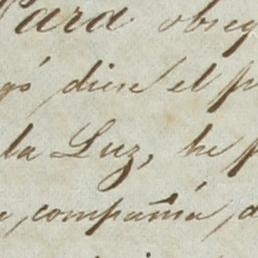 Para obseq
gó diese el p
la Luz, he p
compañía, d